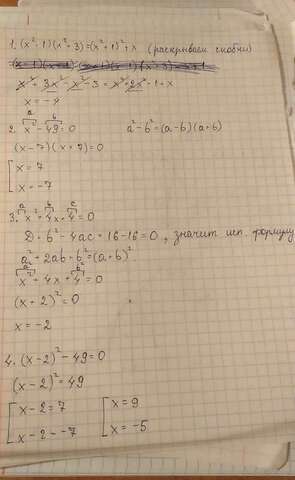 1. (x²-1)(x²+3)=(x²+1)²+x (раскрываем скобки)
x⁴+3x²-x²-3=x⁴+2x²+1+x
x=-4
a b
2. x²-49=0 a²-b²=(a-b)(a+b)
(x-7)(x+7)=0
x=7
x=-7
a b c
3. x²+4x+4=0
D=b²-4ac=16-16=0, значит исп. формулу
a²+2ab+b²=(a+b)²
a² b²
x²+4x+4=0
(x+2)²=0
x=-2
4. (x-2)²-49=0
(x-2)²=49
x-2=7 x=9
x-2=-7 x=-5